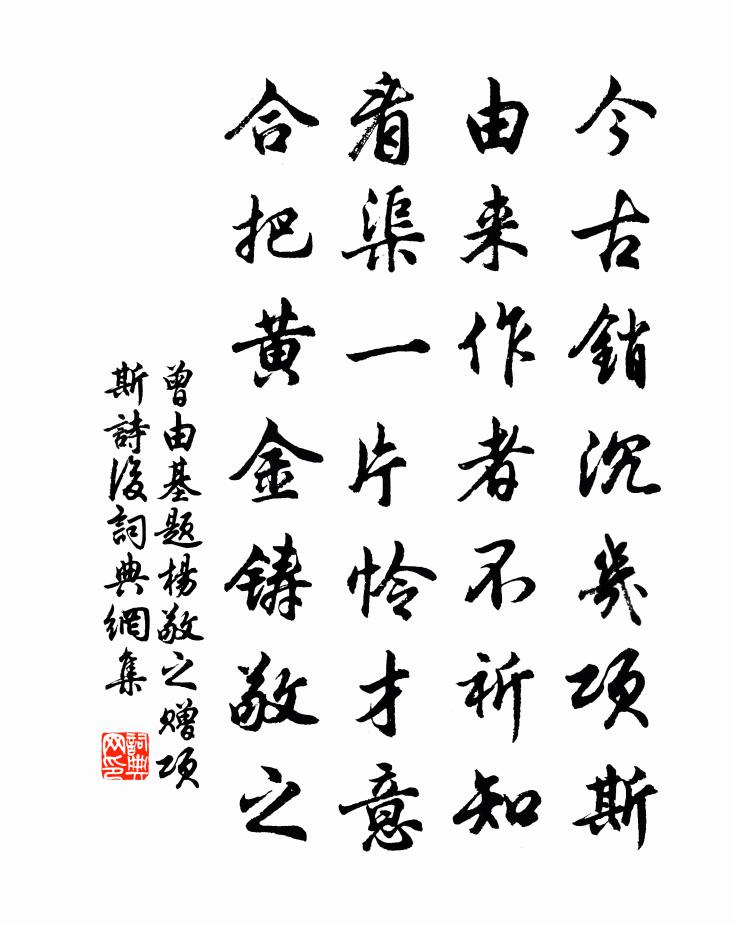 今古銷沉幾項斯
由来作者不祈知
看渠一片怜才意
合把黄金鑄敬之
曾由基題楊敬之赠項
斯詩後詞典網集
詞典网印